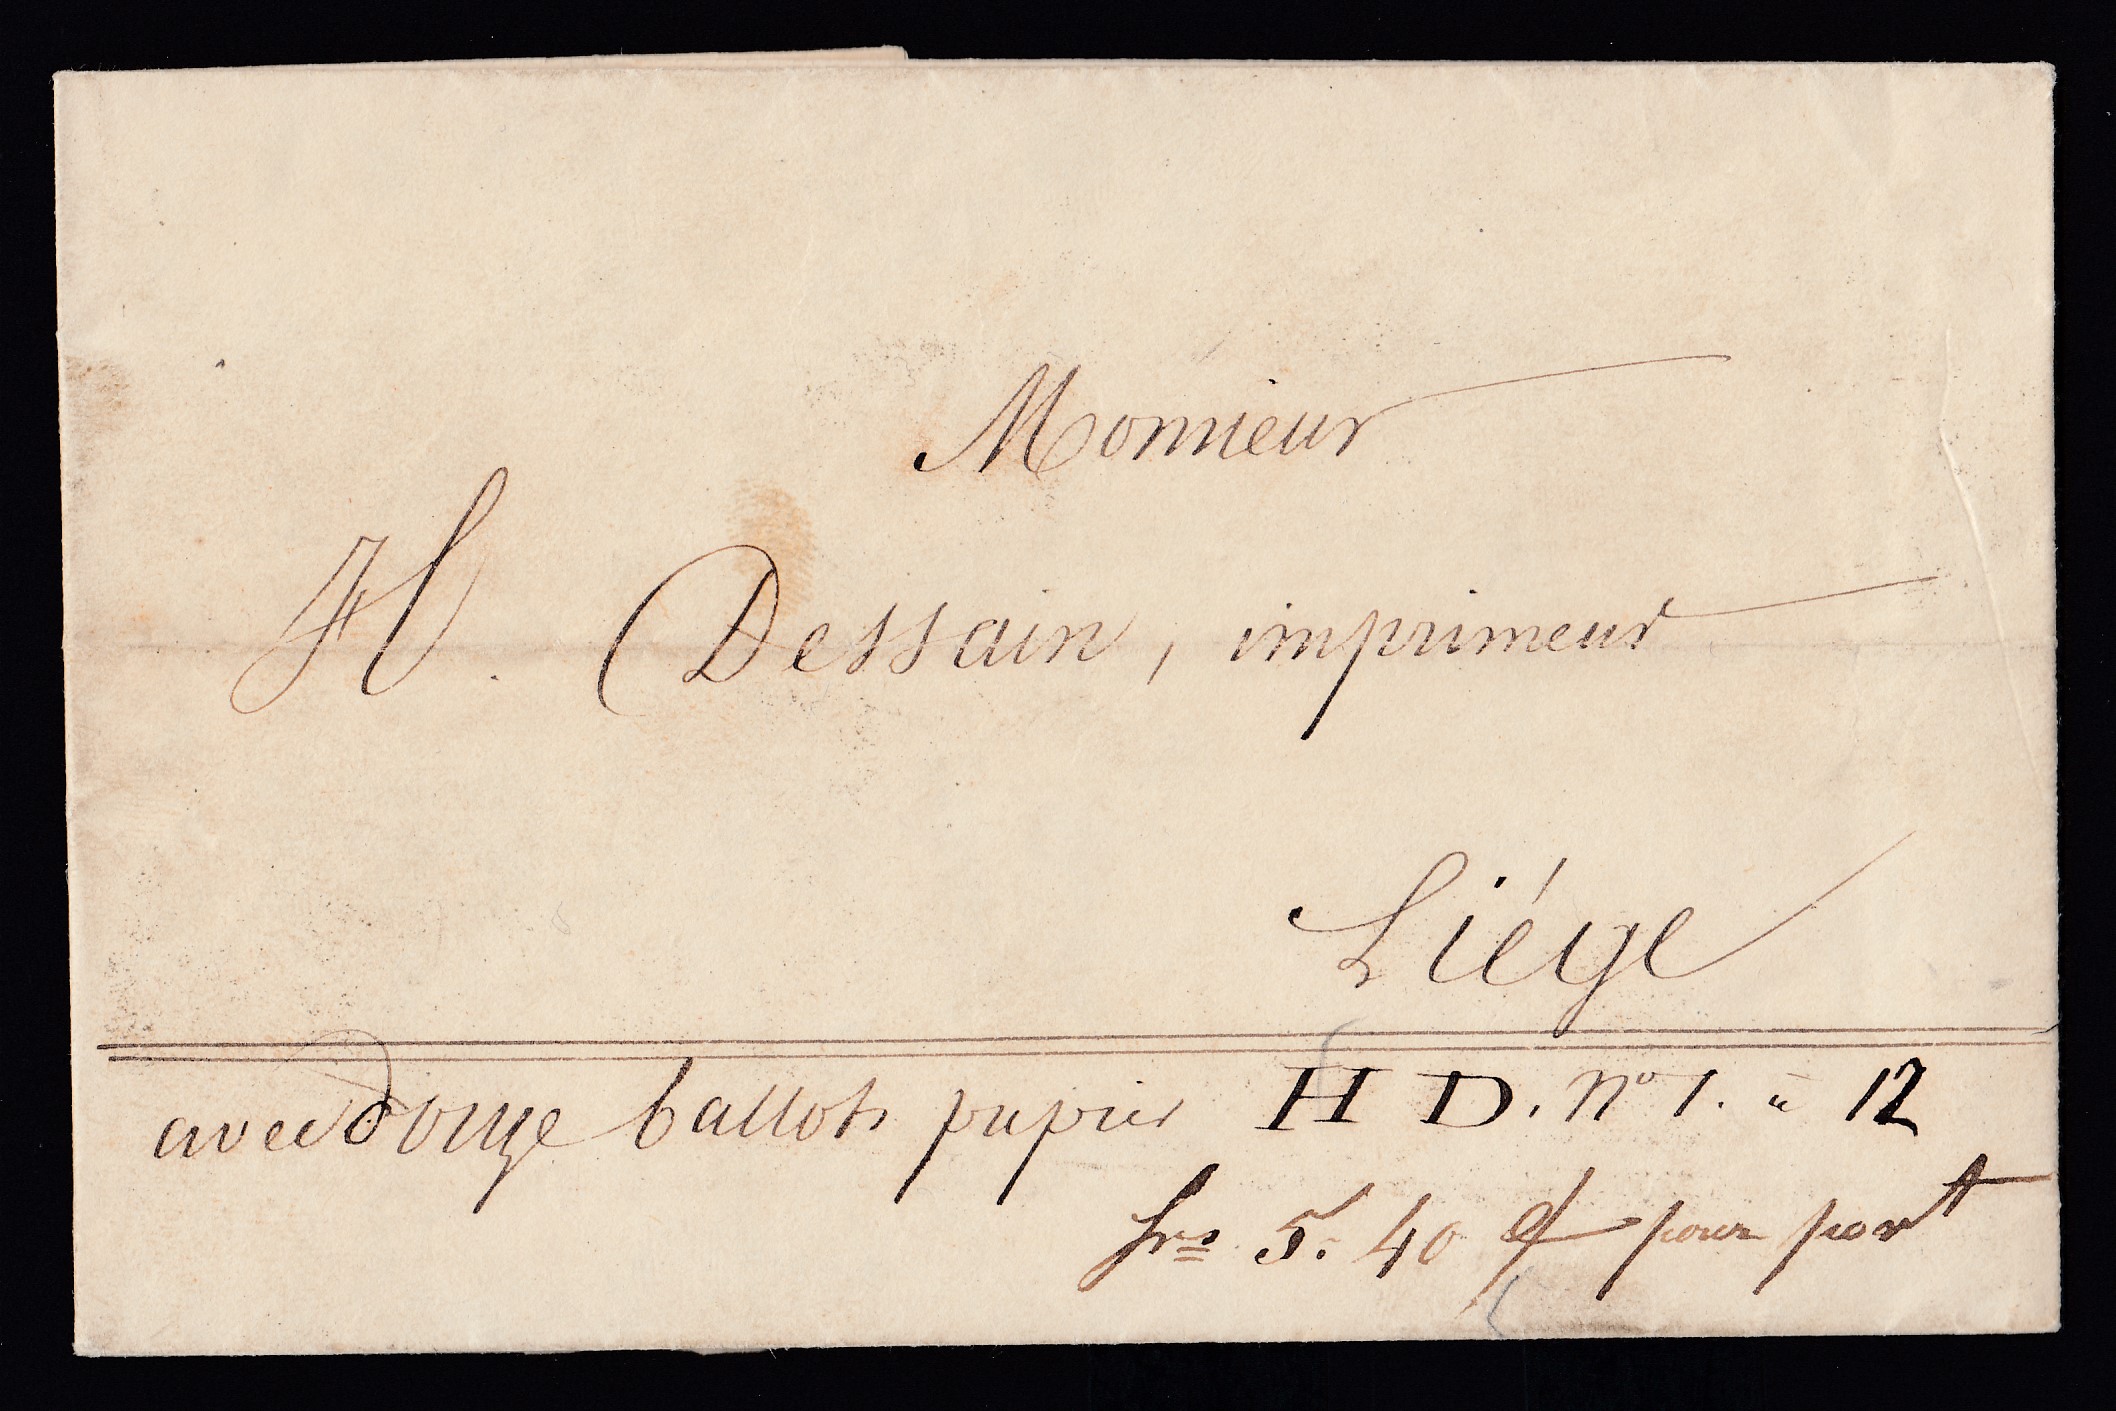 Monsieur
H. Dessain, imprimeur
Liége
avec douze ballots papier H D. No 1. à 12
frs 5. 40 c/ pour port